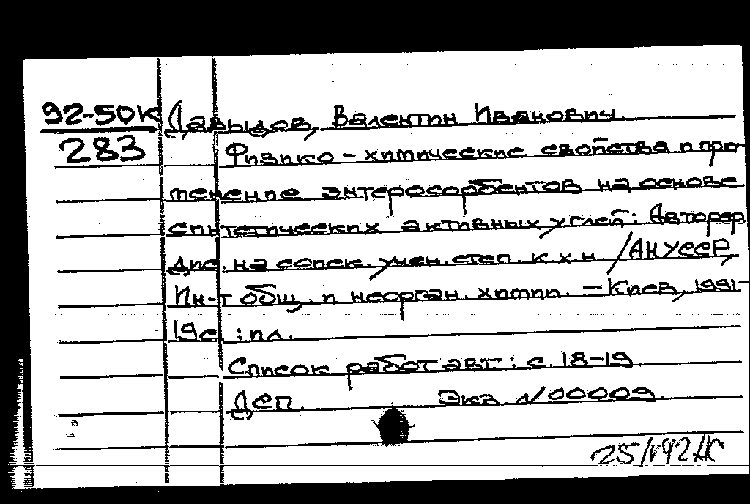 92-50к Давыдов, Валентин Иванович.
283 Физико-химические свойства и при-
менение энтеросорбентов на основе
синтетических активных углей: Автореф.
дис. на соиск. учен. степ. к.х.н /АН УССР,
Ин-т общ. и неорган. химии. – Киев, 1991-
19с.: ил.
Список работ авт.: с. 18-19.
ДСП. Экз. N/00009.